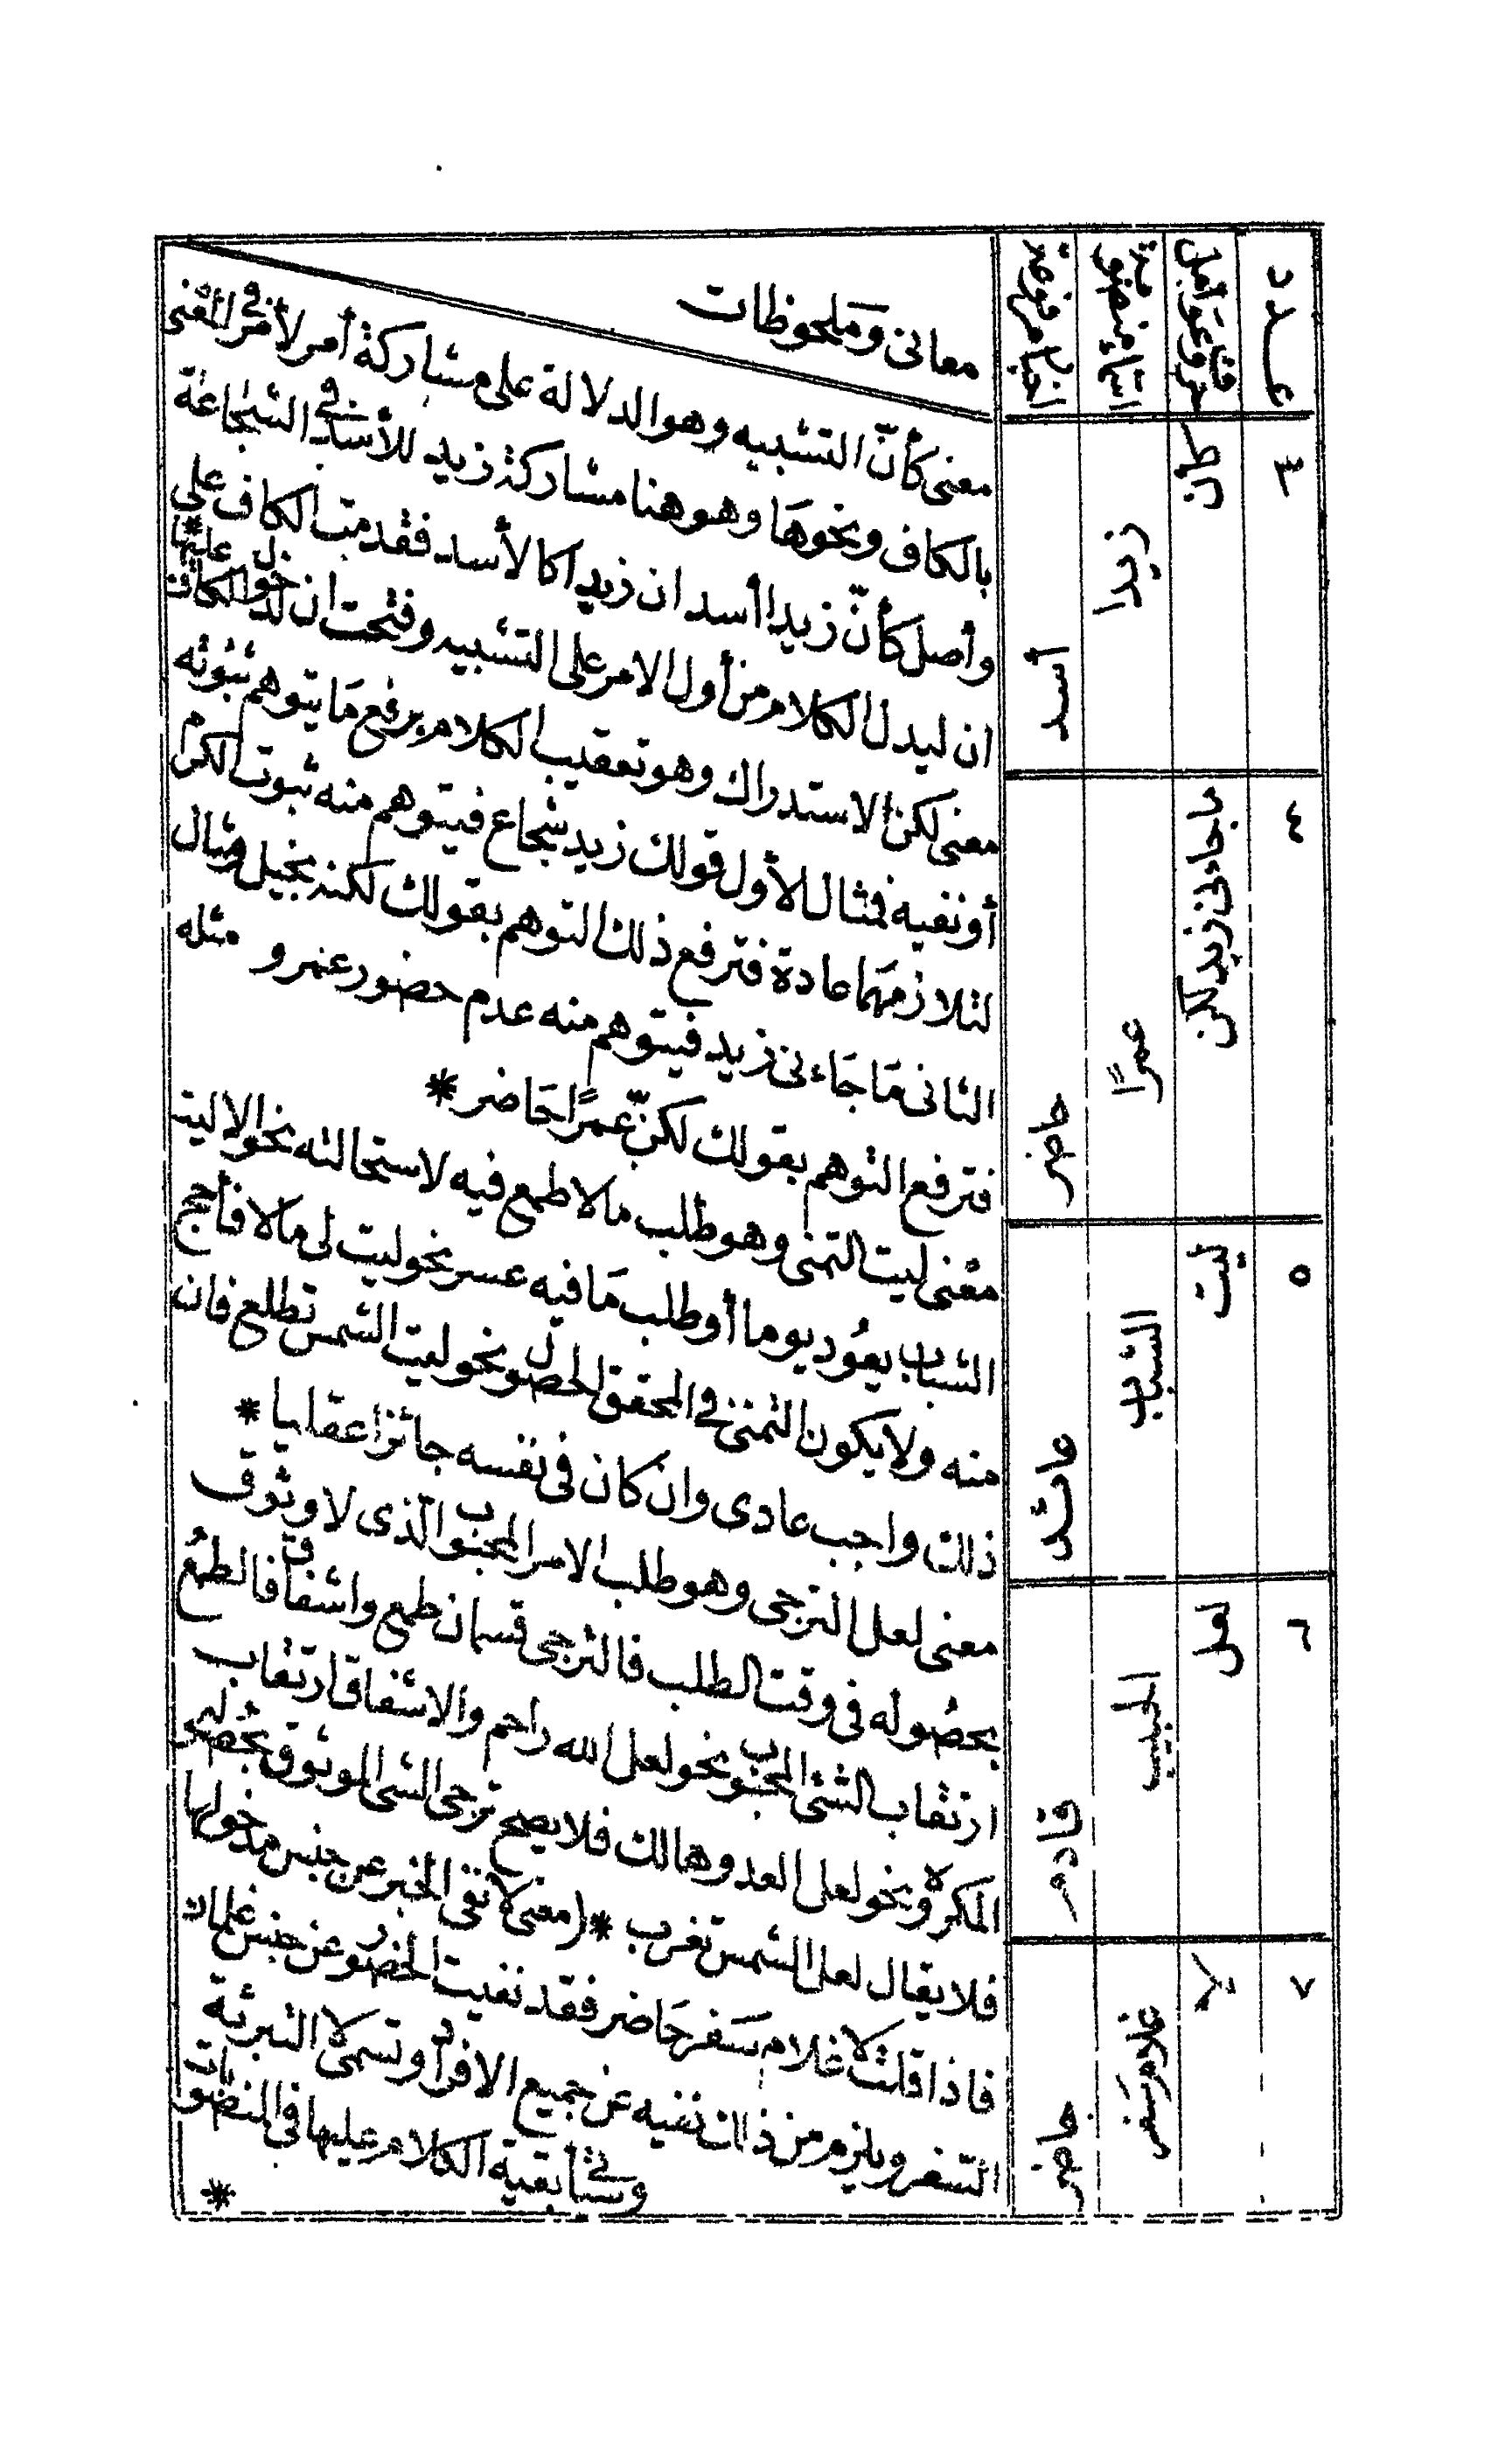 عدد
حروف عوامل
اسماء منصوبة
اخبار مرفوعة
معانى وملحوظات
٣
كأن
زيدا
أسد
٤
ما جاءنى زيد لكن
عمرًا
حاضر
٥
ليت
الشباب
عائد
٦
لعل
الحبيب
قادم
٧
لا
غلام سفر
حاضر
معنى كأنّ التشبيه وهو الدلالة على مشاركة أمر لأمر فى المعنى
بالكاف ونحوها وهو هنا مشاركة زيد للأسد فى الشجاعة
وأصل كأنّ زيدا أسد ان زيدا كالأسد فقدمت الكاف على
ان ليدل الكلام من أول الامر على التشبيه وفتحت ان لدخول الكاف عليها *
معنى لكن الاستدراك وهو تعقيب الكلام برفع ما يتوهم ثبوته
أو نفيه فمثال الأول قولك زيد شجاع فيتوهم منه ثبوت الكرم
لتلازمهما عادة فترفع ذلك التوهم بقولك لكنه بخيل ومثال
الثانى ما جاءنى زيد فيتوهم منه عدم حضور عمرو مثله
فترفع التوهم بقولك لكنّ عمرًا حاضر *
معنى ليت التمنى وهو طلب ما لا طمع فيه لاستحالته نحو الا ليت
الشباب يعود يوما أو طلب ما فيه عسر نحو ليت لى مالا فأحج
منه ولا يكون التمنى فى المحقق الحصول نحو ليت الشمس تطلع فان
ذلك واجب عادى وان كان فى نفسه جائزا عقليا *
معنى لعل الترجى وهو طلب الامر المحبوب الّذى لا وثوق
بحصوله فى وقت الطلب فالترجى قسمان طمع واشفاق فالطمع
ارتقاب الشئ المحبوب نحو لعل الله راحم والاشفاق ارتقاب
المكروه نحو لعل العدو هالك فلا يصح ترجى الشئ الموثوق بحصوله
فلا يقال لعل الشمس تغرب * (معنى لا نفى الخبر عن جنس مدخولها
فاذا قلت لا غلام سفر حاضر فقد نفيت الحضور عن جنس غلمان
السّفر ويلزم من ذلك نفيه عن جميع الافراد وتسمى لا التبرئة
وستأتى بقية الكلام عليها فى المنصوبات *